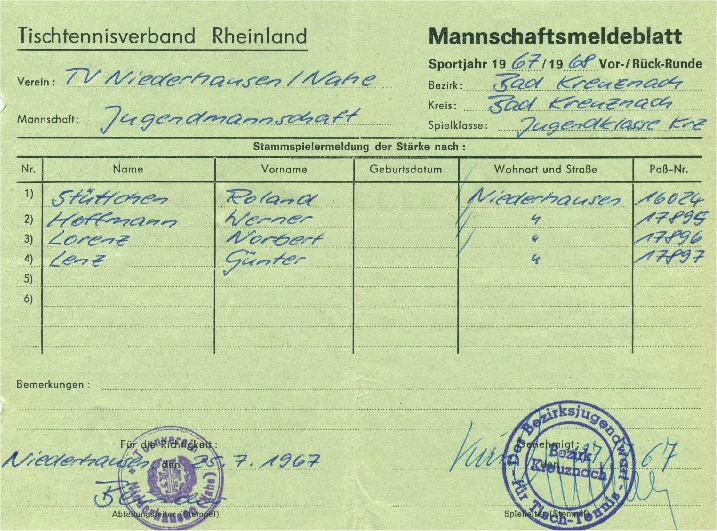 Tischtennisverband Rheinland
Mannschaftsmeldeblatt
Sportjahr 1967/1968 Vor-/Rück-Runde
Verein: TV Niederhausen/Nahe
Bezirk: Bad Kreuznach
Kreis: Bad Kreuznach
Mannschaft: Jugendmannschaft
Spielklasse: Jugendklasse Krz
Stammspielermeldung der Stärke nach:
Nr. Name Vorname Geburtsdatum Wohnort und Straße Paß-Nr.
1) Stüttchen Roland Niederhausen 16024
2) Hoffmann Werner " 17895
3) Lorenz Norbert " 17896
4) Lenz Günter " 17897
5)
6)
Bemerkungen:
Für die Richtigkeit:
Genehmigt:
Niederhausen den 25. 7. 1967
den 67
Abteilungsleiter (Stempel)
Spielleiter (Stempel)
Turnverein
Niederhausen (Nahe)
Der Bezirksjugendwart
Bezirk
Kreuznach
für Tisch-Tennis